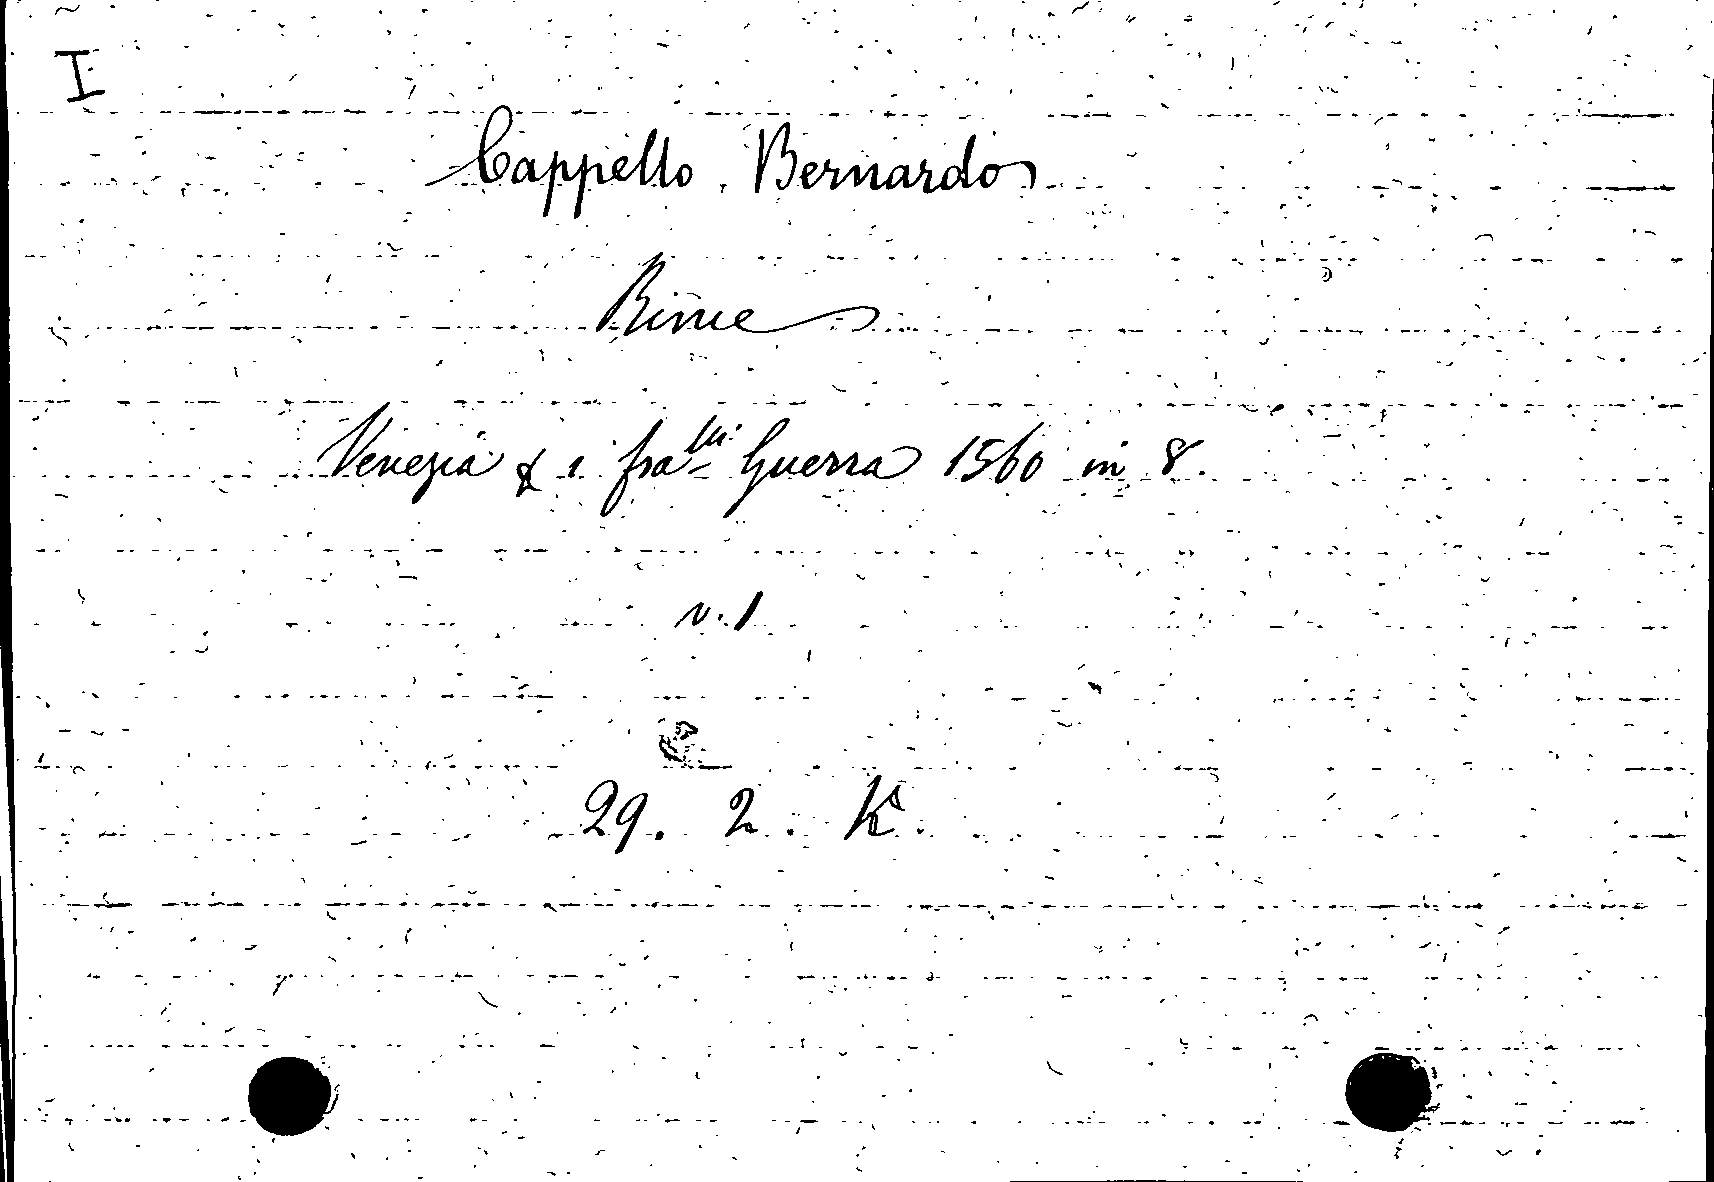 I
Cappello, Bernardo
Rime
Venezia & i fra^lli Guerra 1560 in 8.
v. 1
29. 2. K.